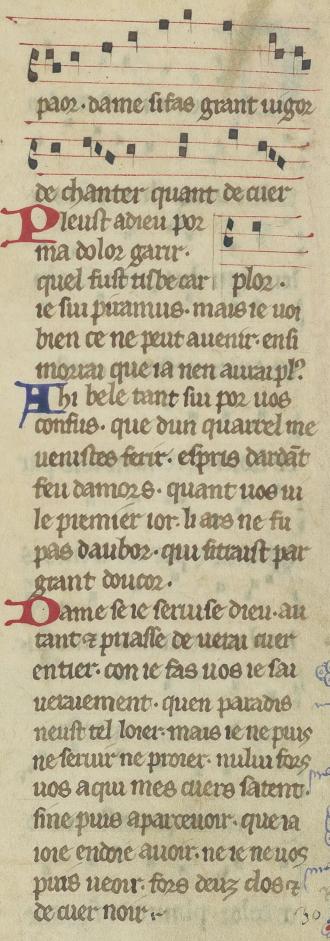 paor. dame si fas grant uigor
de chanter quant de cuer
plor.
Pleust adieu por
ma dolor garir.
quel fust tisbe car
ie sui piramus. mais ie uoi
bien ce ne peut auenir. ensi
morrai que ia nen aurai pl?
Ahi bele tant sui por uos
confus. que dun quarrel me
uenistes ferir. espris dardāt
feu damors. quant uos ui
le premier ior. li ars ne fu
pas daubor. qui si traist par
grant doucor.
Dame se ie seruise dieu. au
tant ⁊ priasse de uerai cuer
entier. con ie fas uos ie sai
ueraiement. quen paradis
neust tel loier. mais ie ne puis
ne seruir ne proier. nului fors
uos a qui mes cuers satent.
sine puis aparceuoir. que ia
ioie endoie auoir. ne ie ne uos
puis ueoir. fors deuz clos ⁊
de cuer noir.